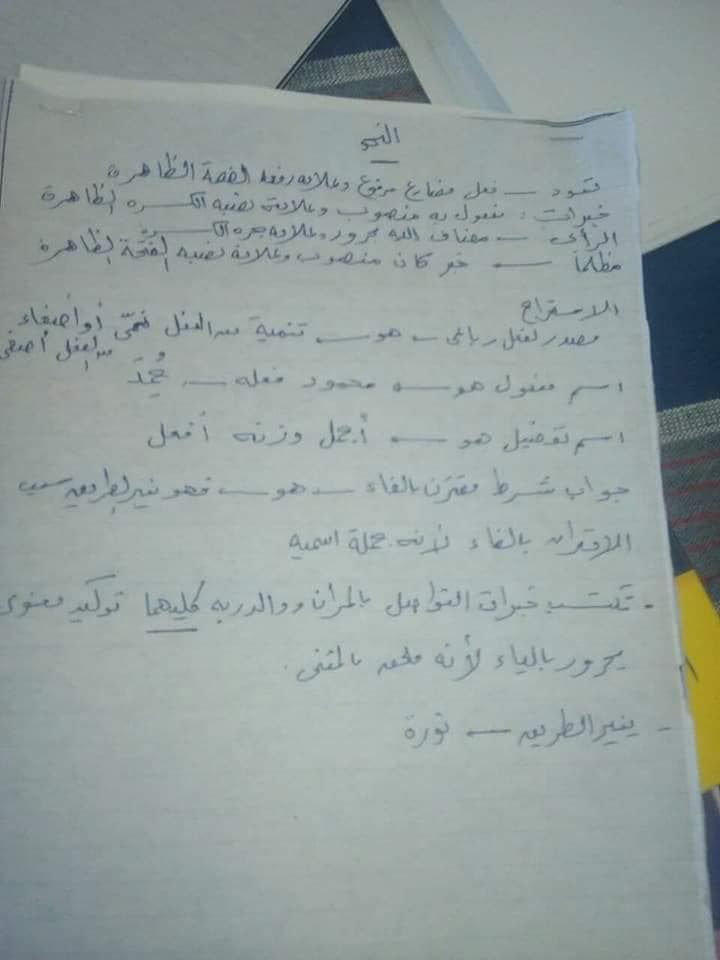 النحو
تقود ـ فعل مضارع مرفوع وعلامة رفعه الضمة الظاهرة
خبرات : مفعول به منصوب وعلامة نصبه الكسره الظاهرة
الرأى ـ مضاف اليه مجرور وعلامه جره الكسرة
مظلماً ـ خبر كان منصوب وعلامة نصبه الفتحة الظاهرة
الاستخراج
مصدر لفعل رباعى ـ هو ـ تنمية من الفعل نمّى أو أصغاء
من الفعل أصغى
اسم مفعول هو ـ محمود فعله ـ حُمِدَ
اسم تفضيل هو ـ أجمل وزنه أفعل
جواب شرط مقترن بالفاء ـ هو ـ فهو نير الطريق سبب
الاقتران بالفاء لأنه جملة اسميه
- تكتسب خبرات التواصل بالمران والدربه كليهما توكيد معنوى
مجرور بالياء لأنه ملحق بالمثنى .
- ينير الطريق ـ نوره